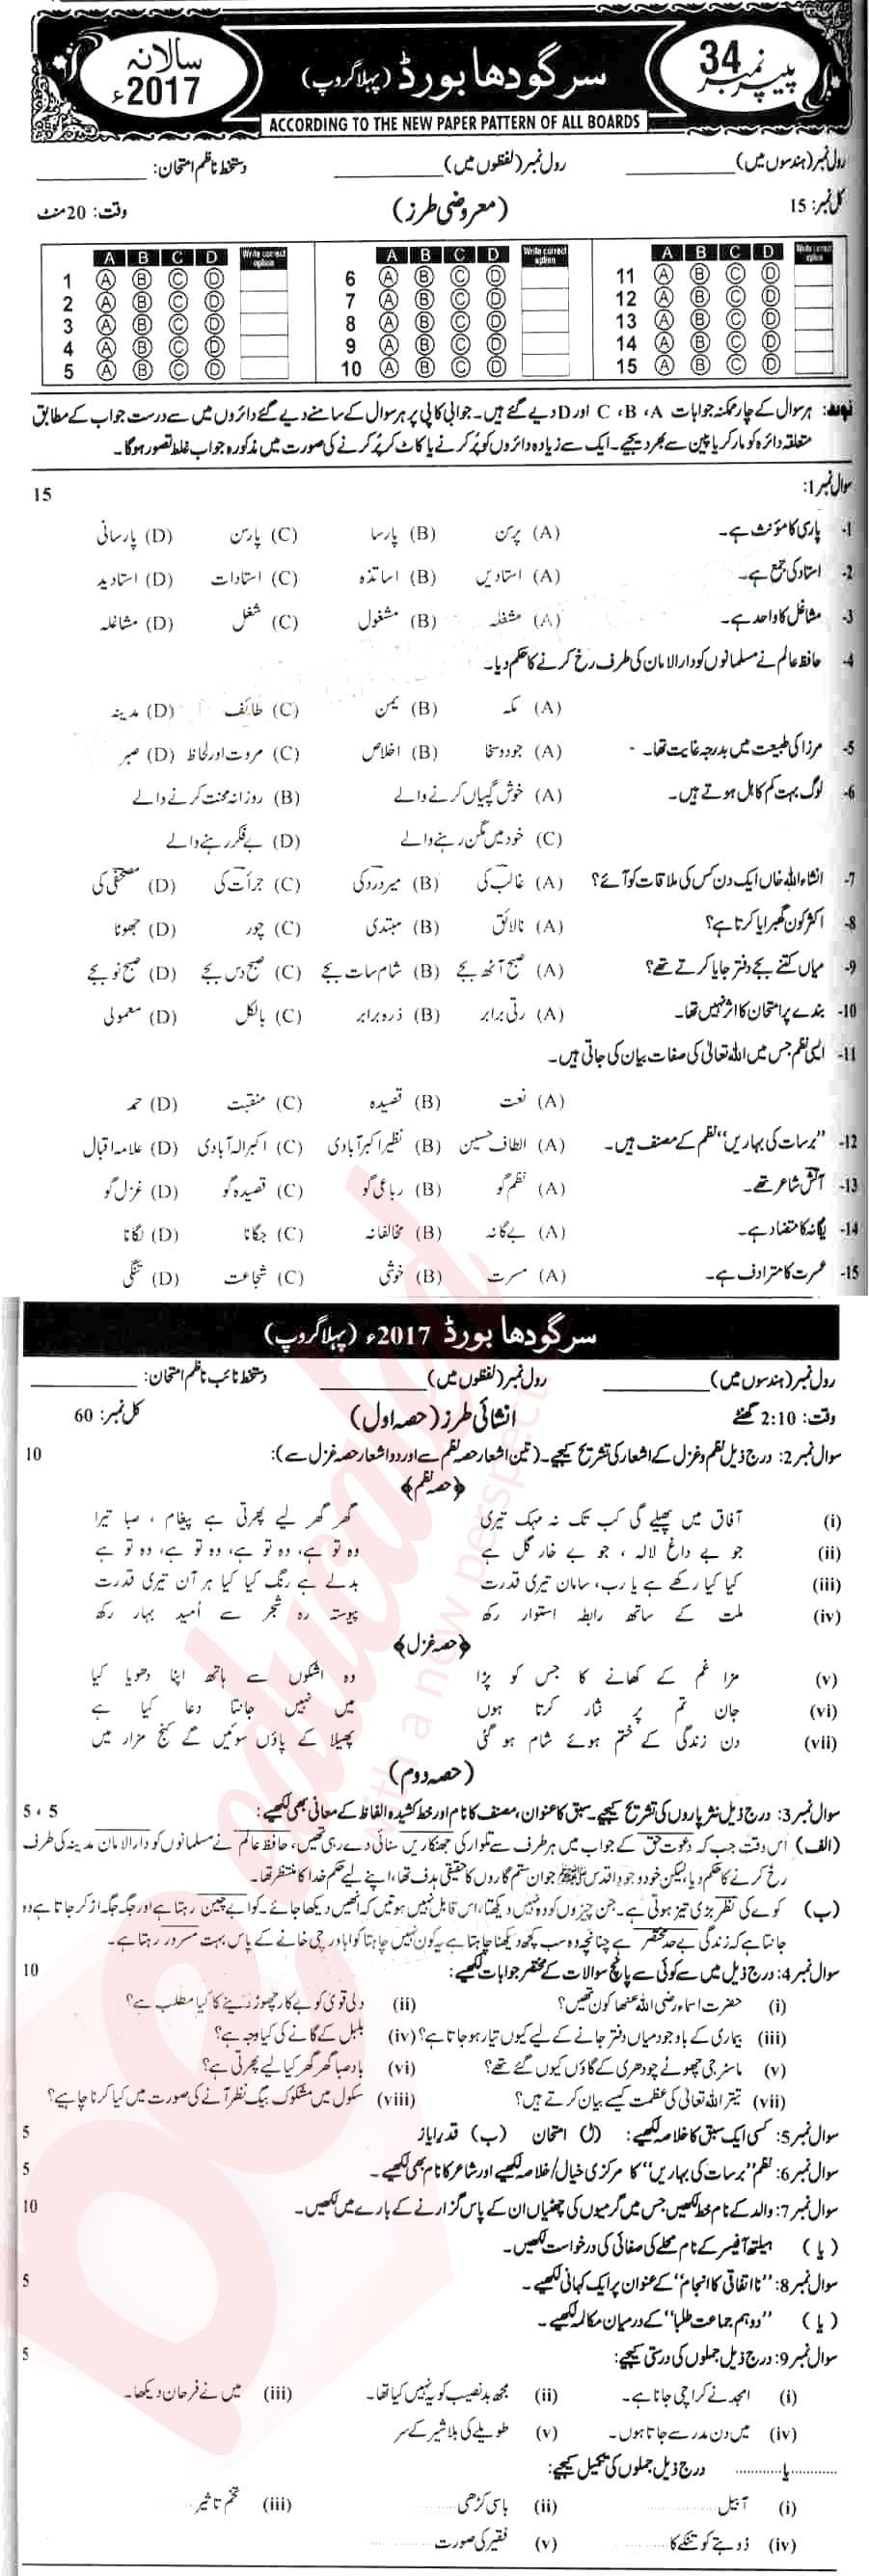 سالانہ 2017ء
سرگودھا بورڈ (پہلا گروپ)
پیپر نمبر 34
ACCORDING TO THE NEW PAPER PATTERN OF ALL BOARDS
رول نمبر (ہندسوں میں) ________ رول نمبر (لفظوں میں) ________ دستخط ناظم امتحان: ________
کل نمبر: 15 (معروضی طرز) وقت: 20 منٹ
A B C D Write correct option A B C D Write correct option A B C D Write correct option
1 A B C D 6 A B C D 11 A B C D
2 A B C D 7 A B C D 12 A B C D
3 A B C D 8 A B C D 13 A B C D
4 A B C D 9 A B C D 14 A B C D
5 A B C D 10 A B C D 15 A B C D
نوٹ: ہر سوال کے چار ممکنہ جوابات A، B، C اور D دیے گئے ہیں۔ جوابی کاپی پر ہر سوال کے سامنے دیے گئے دائروں میں سے درست جواب کے مطابق
متعلقہ دائرہ کو مارکر یا پین سے بھر دیجیے۔ ایک سے زیادہ دائروں کو پُر کرنے یا کاٹ کر پُر کرنے کی صورت میں مذکورہ جواب غلط تصور ہوگا۔
سوال نمبر 1: 15
1- پارسی کا مؤنث ہے۔ (A) پرسن (B) پارسا (C) پارسن (D) پارسانی
2- استاد کی جمع ہے۔ (A) استادیں (B) اساتذہ (C) استادات (D) استادید
3- مشاغل کا واحد ہے۔ (A) مشغلہ (B) مشغول (C) شغل (D) مشاغلہ
4- حافظِ عالم نے مسلمانوں کو دارالامان کی طرف رخ کرنے کا حکم دیا۔
(A) مکہ (B) یمن (C) طائف (D) مدینہ
5- مرزا کی طبیعت میں بدرجہ غایت تھا۔ (A) جود و سخا (B) اخلاص (C) مروت اور لحاظ (D) صبر
6- لوگ بہت کم کاہل ہوتے ہیں۔ (A) خوش گپیاں کرنے والے (B) روزانہ محنت کرنے والے
(C) خود میں مگن رہنے والے (D) بے فکر رہنے والے
7- انشاء اللہ خاں ایک دن کس کی ملاقات کو آئے؟ (A) غالب کی (B) میر درد کی (C) جرأت کی (D) مصحفی کی
8- اکثر کون گھبرایا کرتا ہے؟ (A) نالائق (B) مبتدی (C) چور (D) جھوٹا
9- میاں کتنے بجے دفتر جایا کرتے تھے؟ (A) صبح آٹھ بجے (B) شام سات بجے (C) صبح دس بجے (D) صبح نو بجے
10- بندے پر امتحان کا اثر نہیں تھا۔ (A) رتی برابر (B) ذرہ برابر (C) بالکل (D) معمولی
11- ایسی نظم جس میں اللہ تعالیٰ کی صفات بیان کی جاتی ہیں۔
(A) نعت (B) قصیدہ (C) منقبت (D) حمد
12- "برسات کی بہاریں" نظم کے مصنف ہیں۔ (A) الطاف حسین (B) نظیر اکبر آبادی (C) اکبر الہ آبادی (D) علامہ اقبال
13- آتش شاعر تھے۔ (A) نظم گو (B) رباعی گو (C) قصیدہ گو (D) غزل گو
14- یگانہ کا متضاد ہے۔ (A) بے گانہ (B) مخالفانہ (C) جگانا (D) لگانا
15- عسرت کا مترادف ہے۔ (A) مسرت (B) خوشی (C) شجاعت (D) تنگی
سرگودھا بورڈ 2017ء (پہلا گروپ)
رول نمبر (ہندسوں میں) ________ رول نمبر (لفظوں میں) ________ دستخط نائب ناظم امتحان: ________
وقت: 2:10 گھنٹے انشائی طرز (حصہ اول) کل نمبر: 60
سوال نمبر 2: درج ذیل نظم و غزل کے اشعار کی تشریح کیجیے۔ (تین اشعار حصہ نظم سے اور دو اشعار حصہ غزل سے): 10
﴿حصہ نظم﴾
(i) آفاق میں پھیلے گی کب تک نہ مہک تیری گھر گھر لیے پھرتی ہے پیغام، صبا تیرا
(ii) جو بے داغ لالہ، جو بے خار گل ہے وہ تو ہے، وہ تو ہے، وہ تو ہے، وہ تو ہے
(iii) کیا کیا رکھے ہے یا رب، سامان تیری قدرت بدلے ہے رنگ کیا کیا ہر آن تیری قدرت
(iv) ملت کے ساتھ رابطہ استوار رکھ پیوستہ رہ شجر سے اُمید بہار رکھ
﴿حصہ غزل﴾
(v) مزا غم کے کھانے کا جس کو پڑا وہ اشکوں سے ہاتھ اپنا دھویا کیا
(vi) جان تم پر نثار کرتا ہوں میں نہیں جانتا دعا کیا ہے
(vii) دن زندگی کے ختم ہوئے شام ہو گئی پھیلا کے پاؤں سوئیں گے کنج مزار میں
(حصہ دوم)
سوال نمبر 3: درج ذیل نثر پاروں کی تشریح کیجیے۔ سبق کا عنوان، مصنف کا نام اور خط کشیدہ الفاظ کے معانی بھی لکھیے: 5 ، 5
(الف) اُس وقت جب کہ دعوت حق کے جواب میں ہر طرف سے تلوار کی جھنکاریں سنائی دے رہی تھیں، حافظ عالم نے مسلمانوں کو دارالامان مدینہ کی طرف
رخ کرنے کا حکم دیا لیکن خود وجود اقدس ﷺ جو ان ستم گاروں کا حقیقی ہدف تھا، اپنے لیے حکم خدا کا منتظر تھا۔
(ب) کوے کی نظر بڑی تیز ہوتی ہے۔ جن چیزوں کو وہ نہیں دیکھتا، اس قابل نہیں ہوتیں کہ انھیں دیکھا جائے۔ کوا بے چین رہتا ہے اور جگہ جگہ اڑ کر جاتا ہے وہ
جانتا ہے کہ زندگی بے حد مختصر ہے چنانچہ وہ سب کچھ دیکھنا چاہتا ہے یہ کون نہیں چاہتا کوا باورچی خانے کے پاس بہت مسرور رہتا ہے۔
سوال نمبر 4: درج ذیل میں سے کوئی سے پانچ سوالات کے مختصر جوابات لکھیے: 10
(i) حضرت اسماء رضی اللہ عنھا کون تھیں؟ (ii) دلی قویٰ کو بے کار چھوڑ دینے کا کیا مطلب ہے؟
(iii) بیماری کے باوجود میاں دفتر جانے کے لیے کیوں تیار ہو جاتا ہے؟ (iv) بلبل کے گانے کی کیا وجہ ہے؟
(v) ماسٹر جی چھوٹے چودھری کے گاؤں کیوں گئے تھے؟ (vi) باد صبا گھر گھر کیا لیے پھرتی ہے؟
(vii) تیتر اللہ تعالیٰ کی عظمت کیسے بیان کرتے ہیں؟ (viii) سکول میں مشکوک بیگ نظر آنے کی صورت میں کیا کرنا چاہیے؟
سوال نمبر 5: کسی ایک سبق کا خلاصہ لکھیے: (ل) امتحان (ب) قدر ایاز 5
سوال نمبر 6: نظم "برسات کی بہاریں" کا مرکزی خیال/خلاصہ لکھیے اور شاعر کا نام بھی لکھیے۔ 5
سوال نمبر 7: والد کے نام خط لکھیں جس میں گرمیوں کی چھٹیاں ان کے پاس گزارنے کے بارے میں لکھیں۔ 10
(یا) ہیلتھ آفیسر کے نام محلے کی صفائی کی درخواست لکھیں۔
سوال نمبر 8: "نا اتفاقی کا انجام" کے عنوان پر ایک کہانی لکھیے۔ 5
(یا) "دو ہم جماعت طلبا" کے درمیان مکالمہ لکھیے۔
سوال نمبر 9: درج ذیل جملوں کی درستی کیجیے: 5
(i) امجد نے کراچی جانا ہے۔ (ii) مجھ بدنصیب کو یہ نہیں کیا تھا۔ (iii) میں نے فرحان دیکھا۔
(iv) میں دن مدرسے جاتا ہوں۔ (v) طویلے کی بلا شیر کے سر
............یا............ درج ذیل جملوں کی تکمیل کیجیے:
(i) آ بیل ............ (ii) باسی کڑھی ............ (iii) تخم تاثیر ............
(iv) ڈوبتے کو تنکے کا ............ (v) فقیر کی صورت ............
beeducated
with a new perspect